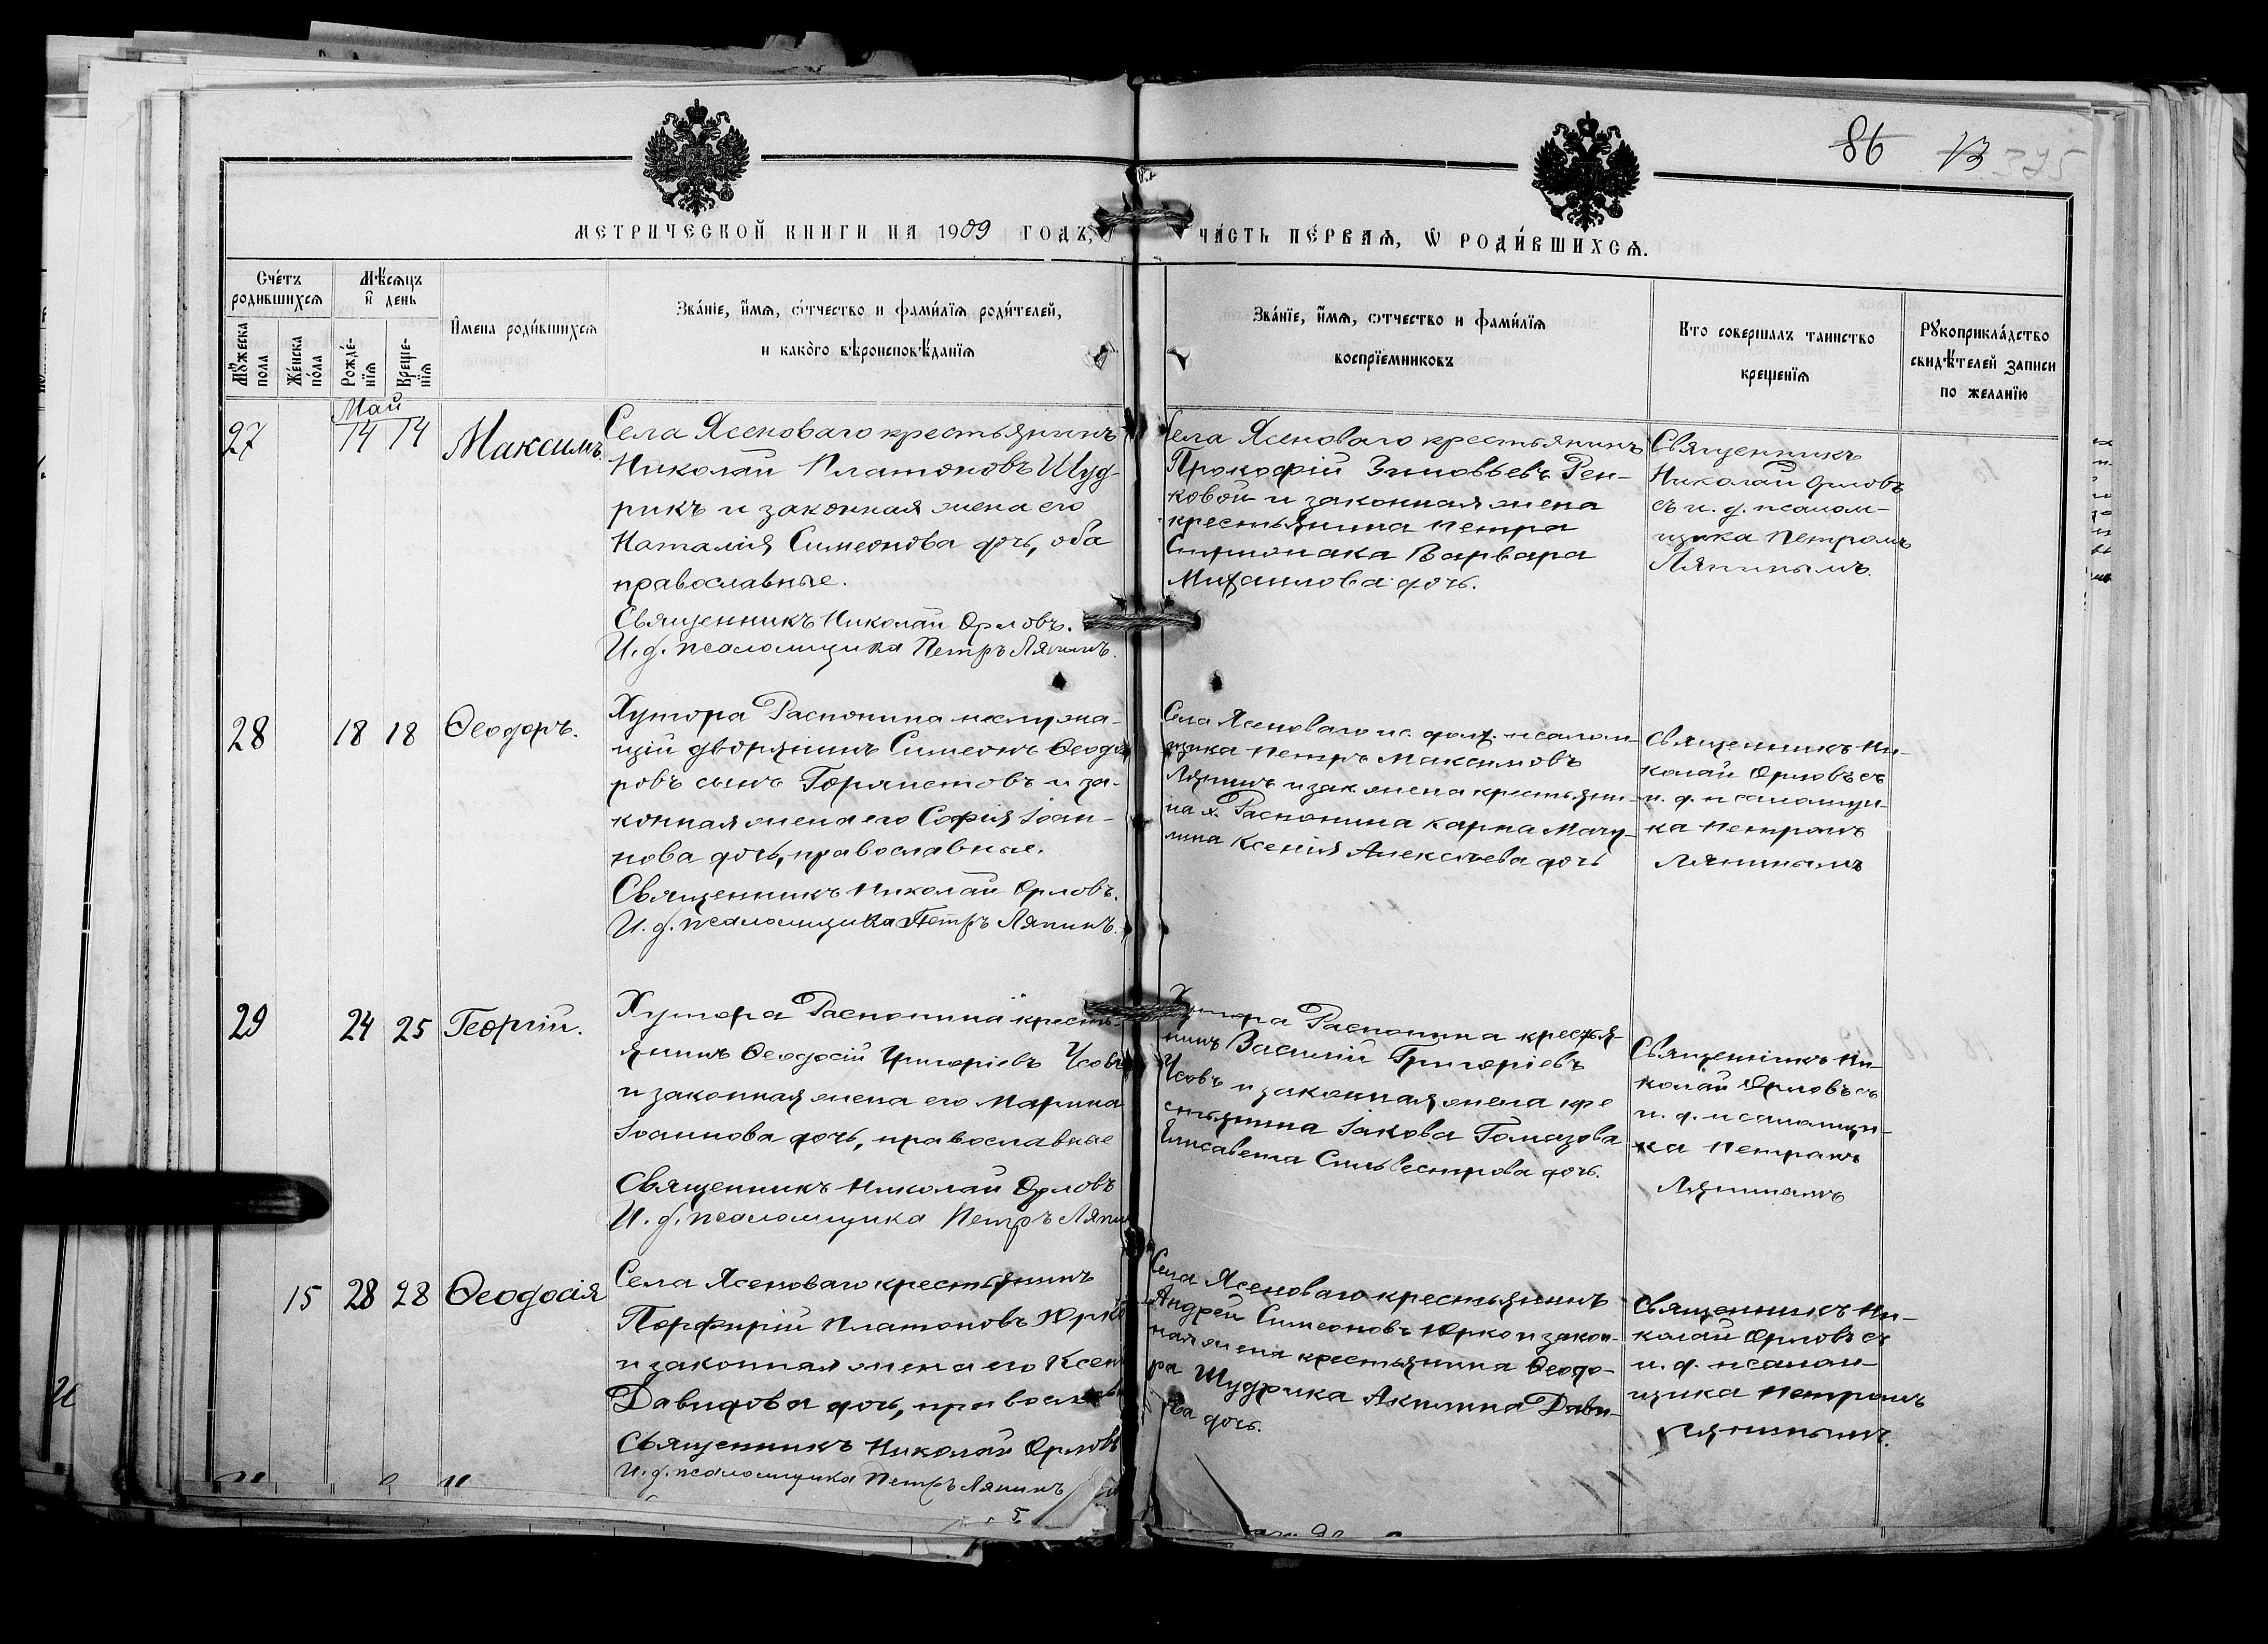 86 13 375
МЕТРИЧЕСКОЙ КНИГИ НА 1909 ГОДЪ,
ЧА́СТЬ ПЕ́РВАѦ, Ѡ҆ РОДИ́ВШИХСѦ.
Сче́тъ родившихсѧ
Мѣ́сѧцъ и҆ день
Мꙋ́жеска пола
Же́нска по́ла
Рожде́-нїѧ
Креще-нїѧ
И҆мена роди́вшихсѧ
Зва́нїе, и҆́мѧ, ѻ҆́тчество и фами́лїѧ роди́телей,
и како́го вѣроисповѣ́данїѧ
Зва́нїе, и҆́мѧ, ѻтчество и фами́лїѧ
воспрїемниковъ
Кто совершалъ таинство
крещенїѧ
Рꙋкоприкла́дство
свидѣ́телей записи
по желанїю
Май
27 14 14 Максимъ.
Села Ясеноваго крестьянинъ
Николай Платоновъ Щуд-
рикъ и законная жена его
Наталія Симеонова дочь, оба
православные.
Священникъ Николай Орловъ.
И. д. псаломщика Петръ Ляпинъ.
Села Ясеноваго крестьянинъ
Прокофій Зиновьевъ Рен-
ковой и законная жена
крестьянина Петра
Варвара
Михаилова дочь.
Священникъ
Николай Орловъ
съ и. д. псалом-
щика Петромъ
Ляпинымъ.
28 18 18 Ѳеодоръ.
Хутора Распопина
дворянинъ Симеонъ Ѳеодо
ровъ сынъ и за-
конная жена его Софія Іоан-
нова дочь, православные.
Священникъ Николай Орловъ.
И. д. псаломщика Петръ Ляпинъ.
Села Ясеноваго ис. долж. псалом-
щика Петръ Максимовъ
Ляпинъ и зак. жена крестьяни-
на х. Распопина Карпа Мачу-
лина Ксенія Алексѣева дочь
Священникъ Ни-
колай Орловъ съ
и. д. псаломщи-
ка Петромъ
Ляпинымъ
29 24 25 Георгій.
Хутора Распопина кресть-
янинъ Ѳеодосій Григоріевъ Усовъ
и законная жена его Марина
Іоаннова дочь, православные
Священникъ Николай Орловъ
И. д. псаломщика Петръ Ляпи
Хутора Распопина крестья-
нинъ Василій Григоріевъ
Усовъ и законная жена кре
стьянина Іакова Гомазова
Елисавета Сильвестрова дочь.
Священникъ Ни-
колай Орловъ съ
и. д. псаломщи-
ка Петромъ
Ляпинымъ
15 28 28 Ѳеодосія
Села Ясеноваго крестьянинъ
Порфирій Платоновъ Юрко
и законная жена его Ксен
Давидова дочь, правосла
Священникъ Николай Орловъ
И. д. псаломщика Петръ Ляпинъ
Села Ясеноваго крестьянинъ
Андрей Симеоновъ Юрко и закон-
ная жена крестьянина Ѳеодо-
ра Щудрика Акилина Дави-
ва дочь.
Священникъ Ни-
колай Орловъ съ
и. д. псалом-
щика Петромъ
Ляпинымъ.